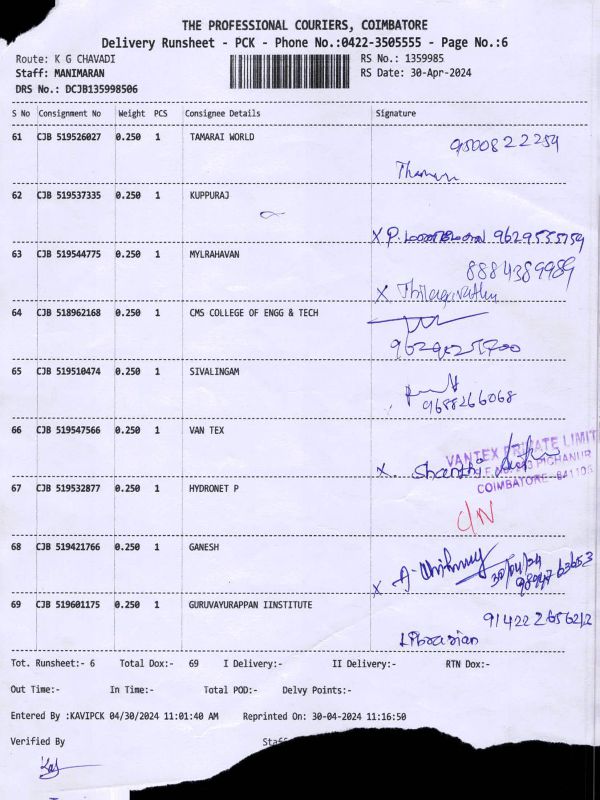 THE PROFESSIONAL COURIERS, COIMBATORE
Delivery Runsheet - PCK - Phone No.:0422-3505555 - Page No.:6
Route: K G CHAVADI
RS No.: 1359985
Staff: MANIMARAN
RS Date: 30-Apr-2024
DRS No.: DCJB135998506
S No Consignment No Weight PCS Consignee Details Signature
61 CJB 519526027 0.250 1 TAMARAI WORLD
9500822259
62 CJB 519537335 0.250 1 KUPPURAJ
X P. 9629555759
63 CJB 519544775 0.250 1 MYLRAHAVAN
8884389989
X Thilagavathy
64 CJB 518962168 0.250 1 CMS COLLEGE OF ENGG & TECH
65 CJB 519510474 0.250 1 SIVALINGAM
9688266068
66 CJB 519547566 0.250 1 VAN TEX
VANTEX PRIVATE LIMIT
PICHANUR
X. Shanthi
COIMBATORE - 641105
67 CJB 519532877 0.250 1 HYDRONET P
C/N
68 CJB 519421766 0.250 1 GANESH
X A. 30/04/24
9894763653
69 CJB 519601175 0.250 1 GURUVAYURAPPAN IINSTITUTE
914222656212
Librarian
Tot. Runsheet:- 6 Total Dox:- 69 I Delivery:- II Delivery:- RTN Dox:-
Out Time:- In Time:- Total POD:- Delvy Points:-
Entered By :KAVIPCK 04/30/2024 11:01:40 AM Reprinted On: 30-04-2024 11:16:50
Verified By Staff